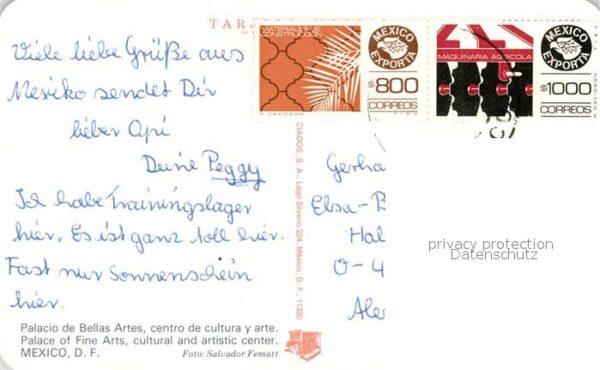 TAR
MATERIALES DE CONSTRUCCION
MEXICO EXPORTA
$800
CORREOS
R DAVIDSON
MAQUINARIA AGRICOLA
MEXICO EXPORTA
$1000
CORREOS
R DAVIDSON
Viele liebe Grüße aus
Mexiko sendet Dir
lieber Opi
Deine Peggy
Ich habe Trainingslager
hier. Es ist ganz toll hier.
Fast nur Sonnenschein
hier.
CIADOS, S. A., Lago Silverio 224, México, D. F., 11320
Gerha
Elsa-B
Hal
O-4
privacy protection
Datenschutz
Palacio de Bellas Artes, centro de cultura y arte.
Palace of Fine Arts, cultural and artistic center.
MEXICO, D. F.
Foto: Salvador Fematt